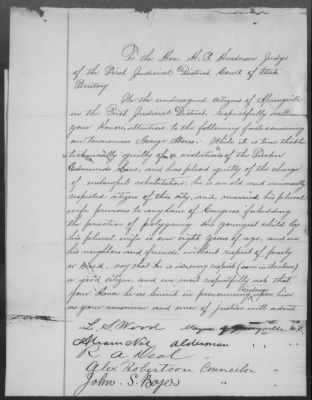 To the Hon H. P. Henderson Judge
of the First Judicial District Court of Utah
Territory
We the undersigned citizens of Springville
in the First Judicial District respectfully call
your Honors, attention to the following facts concerning
our townsman George Storrs. While it is true that he
is technically guilty of a violation of the
Edmunds Law, and has plead guilty to the charge
of unlawful cohabitation; he is an old and universally
respected citizen of this city, and married his plural
wife previous to any law of Congress forbidding
the practice of polygamy. His youngest child by
his plural wife is over eight years of age, and we
his neighbors and friends, without respect of party
or creed, say that he is in every respect (save in the above)
a good citizen, and we most respectfully ask that
your Honor be as lenient in pronouncing sentence upon him
as your conscience and sense of justice will admit
L. S. Wood Mayor of Springville
Alderman "
R A Deal "
Alex Robertson Councelor "
John S. Boyer " "